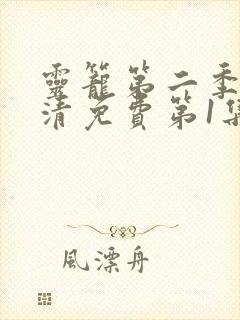 靈籠第二季
清免費第1集
風漂舟